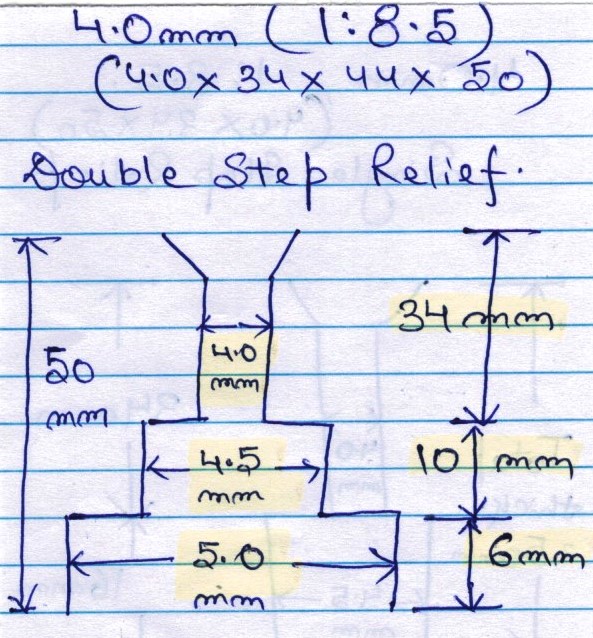 4.0mm (1:8.5)
(4.0 x 34 x 44 x 50)
Double Step Relief.
50
mm
4.0
mm
34 mm
4.5
mm
10 mm
5.0
mm
6mm